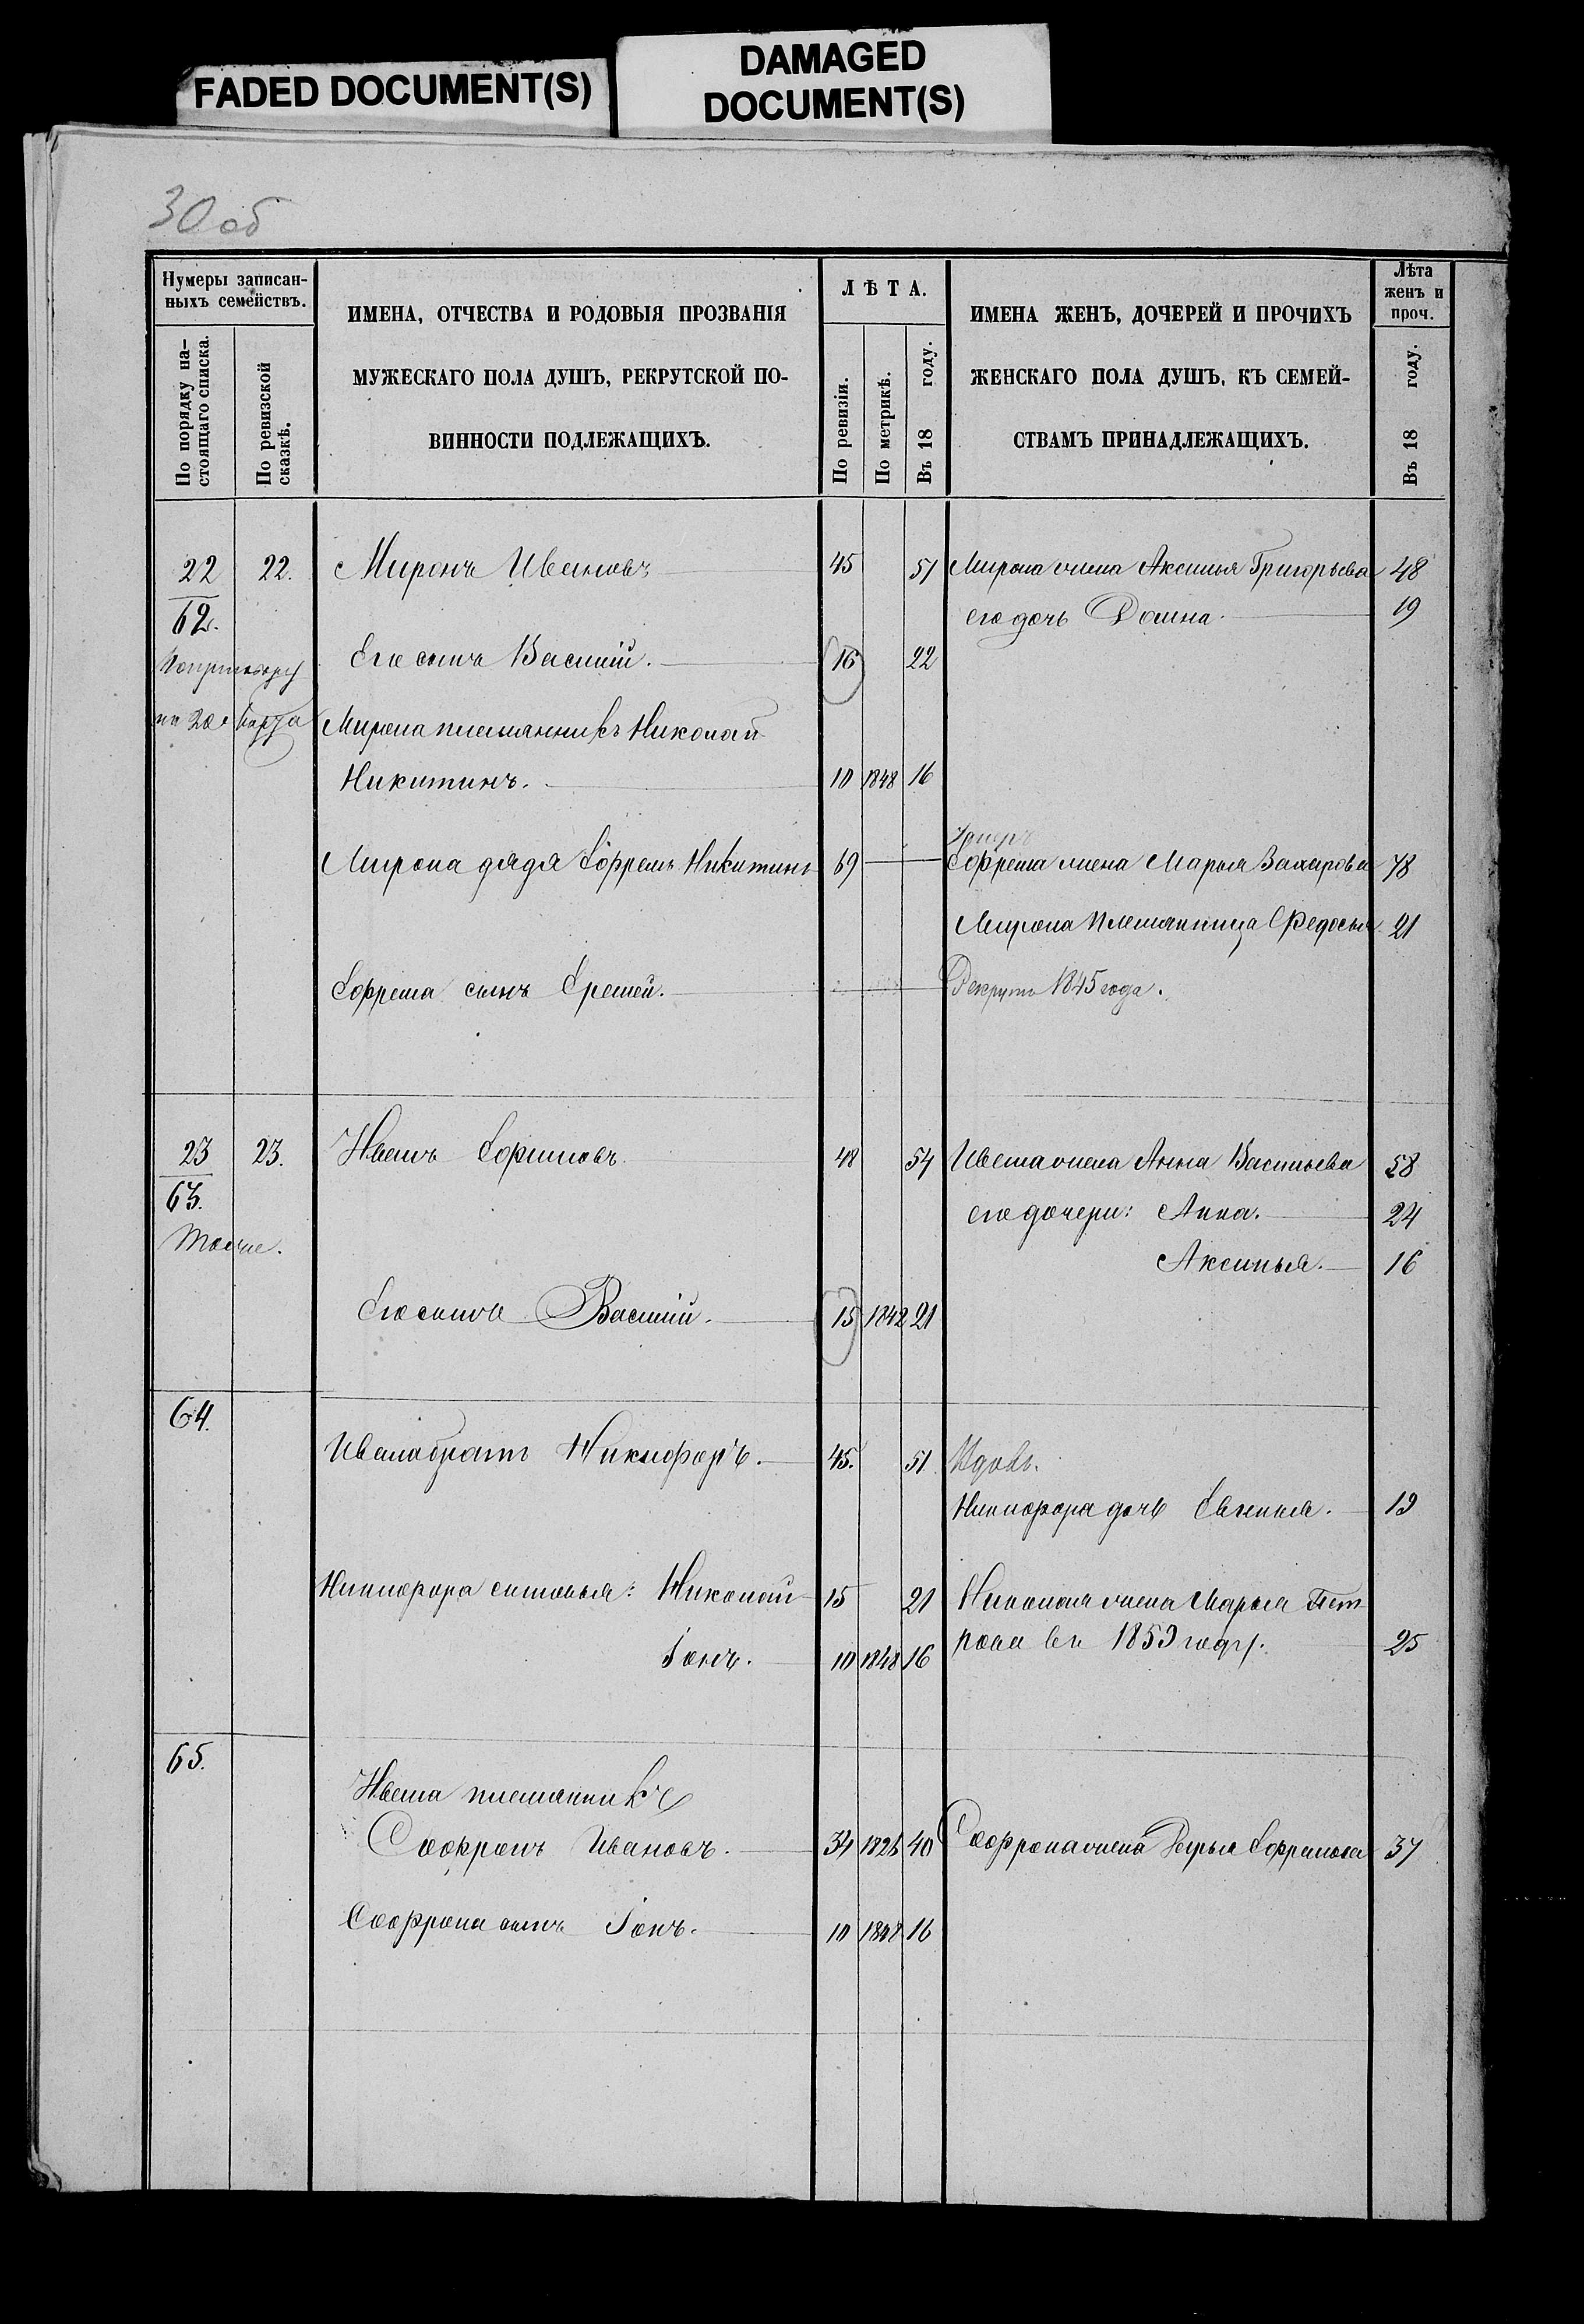 FADED DOCUMENT(S)
DAMAGED
DOCUMENT(S)
30 об
Нумеры записан-
ныхъ семействъ.
По порядку на-
стоящаго списка.
По ревизской
сказкѣ.
ИМЕНА, ОТЧЕСТВА И РОДОВЫЯ ПРОЗВАНІЯ
МУЖЕСКАГО ПОЛА ДУШЪ, РЕКРУТСКОЙ ПО-
ВИННОСТИ ПОДЛЕЖАЩИХЪ.
ЛѢТА.
По ревизіи.
По метрикѣ.
Въ 18 году.
ИМЕНА ЖЕНЪ, ДОЧЕРЕЙ И ПРОЧИХЪ
ЖЕНСКАГО ПОЛА ДУШЪ, КЪ СЕМЕЙ-
СТВАМЪ ПРИНАДЛЕЖАЩИХЪ.
Лѣта
женъ и
проч.
Въ 18 году.
22 22. Миронъ Ивановъ 45 51 Мирона жена Аксинья Григорьева 48
62. его дочь Домна. 19
Его сынъ Василій. 16 22
на 20
Мирона племянникъ Николай
Никитинъ. 10 1848 16
Умеръ
Мирона дядя Ефремъ Никитинъ 69 Ефрема жена Марья Захарова 78
Мирона племянница Федосья 21
Ефрема сынъ Еремей. Рекрутъ 1845 года.
23 23. Иванъ 48 54 Ивана жена Анна Васильева 58
63. его дочери: Анна. 24
Тоже. Аксинья. 16
Его сынъ Василій. 15 1842 21
64.
Ивана братъ Никифоръ. 45. 51 Вдовъ.
Никифора дочь Евгенья. 19
Никифора сыновья: Николай 15 21 Николая жена Марья Пет-
рова въ 1859 году. 25
Іонъ. 10 1848 16
65.
Ивана племянникъ
Софронъ Ивановъ. 34 40 Софрона жена Дарья Ефремова 37
Софрона сынъ Іонъ. 10 1848 16